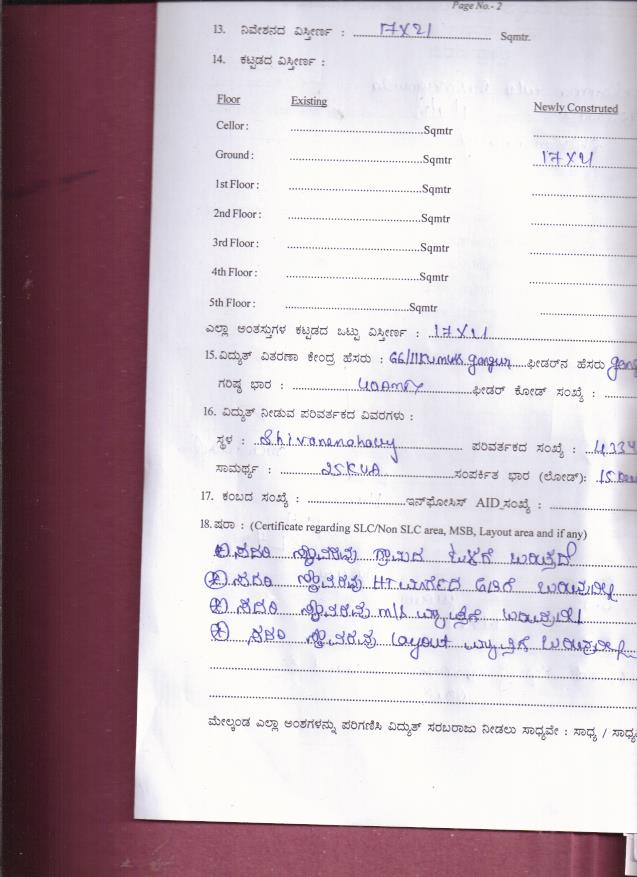 Page No.- 2
13. ನಿವೇಶನದ ವಿಸ್ತೀರ್ಣ : 17X21 Sqmtr.
14. ಕಟ್ಟಡದ ವಿಸ್ತೀರ್ಣ :
Floor Existing Newly Construted
Cellor : Sqmtr
Ground : Sqmtr 17X21
1st Floor : Sqmtr
2nd Floor : Sqmtr
3rd Floor : Sqmtr
4th Floor : Sqmtr
5th Floor : Sqmtr
ಎಲ್ಲಾ ಅಂತಸ್ತುಗಳ ಕಟ್ಟಡದ ಒಟ್ಟು ವಿಸ್ತೀರ್ಣ : 17X21
15. ವಿದ್ಯುತ್ ವಿತರಣಾ ಕೇಂದ್ರ ಹೆಸರು : 66/11 ಫೀಡರ್‌ನ ಹೆಸರು
ಗರಿಷ್ಠ ಭಾರ : ಫೀಡರ್ ಕೋಡ್ ಸಂಖ್ಯೆ :
16. ವಿದ್ಯುತ್ ನೀಡುವ ಪರಿವರ್ತಕದ ವಿವರಗಳು :
ಸ್ಥಳ : ಪರಿವರ್ತಕದ ಸಂಖ್ಯೆ :
ಸಾಮರ್ಥ್ಯ : 25KVA ಸಂಪರ್ಕಿತ ಭಾರ (ಲೋಡ್):
17. ಕಂಬದ ಸಂಖ್ಯೆ : ಇನ್‌ಫೋಸಿಸ್ AID ಸಂಖ್ಯೆ :
18. ಷರಾ : (Certificate regarding SLC/Non SLC area, MSB, Layout area and if any)
ಸದರಿ ಸ್ಥಾವರವು ಗ್ರಾಮದ ಒಳಗೆ ಬರುತ್ತದೆ
ಸದರಿ ಸ್ಥಾವರವು HT ಬರುವುದಿಲ್ಲ
ಸದರಿ ಸ್ಥಾವರವು ವ್ಯಾಪ್ತಿಗೆ ಬರುವುದಿಲ್ಲ
ಸದರಿ ಸ್ಥಾವರವು Layout ವ್ಯಾಪ್ತಿಗೆ ಬರುವುದಿಲ್ಲ
ಮೇಲ್ಕಂಡ ಎಲ್ಲಾ ಅಂಶಗಳನ್ನು ಪರಿಗಣಿಸಿ ವಿದ್ಯುತ್ ಸರಬರಾಜು ನೀಡಲು ಸಾಧ್ಯವೇ : ಸಾಧ್ಯ /